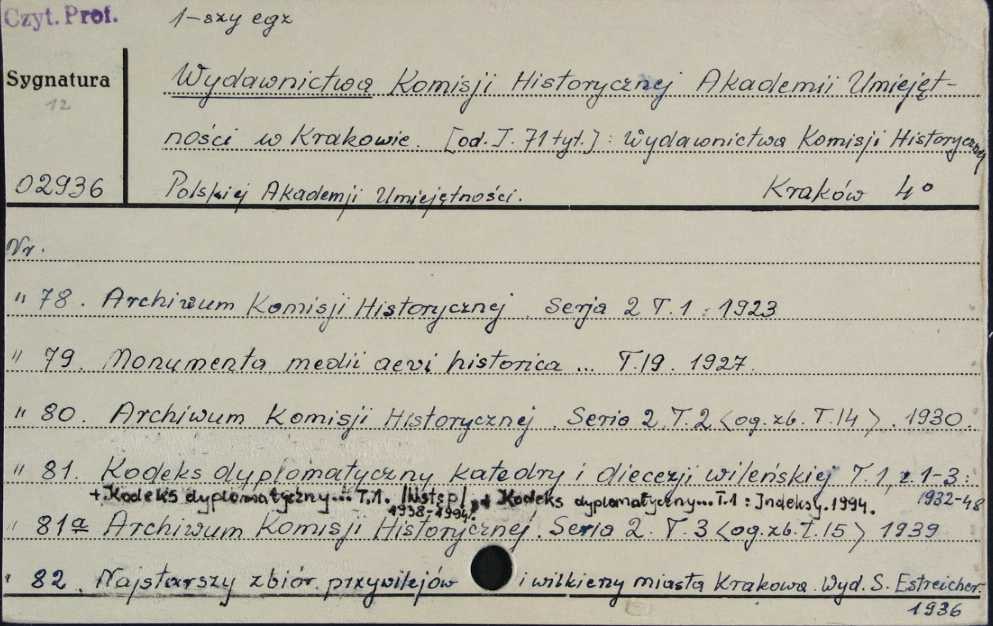 Czyt. Prof.
1-szy egz
Sygnatura
12
02936
Wydawnictwa Komisji Historycznej Akademii Umiejęt-
ności w Krakowie. [od. T. 71 tyt.]: Wydawnictwa Komisji Historycznej
Polskiej Akademji Umiejętności. Kraków 4°
Nr.
" 78. Archiwum Komisji Historycznej. Serja 2 T.1: 1923
" 79. Monumenta medii aevi historica ... T.19. 1927.
" 80. Archiwum Komisji Historycznej. Seria 2. T.2 <og. zb. T.14>. 1930.
" 81. Kodeks dyplomatyczny katedry i diecezji wileńskiej T.1, z. 1-3:
1932-48
+ Kodeks dyplomatyczny... T.1. /Wstęp/ + Kodeks dyplomatyczny... T.1: Indeksy. 1994.
1938-1994.
" 81a Archiwum Komisji Historycznej. Seria 2. T.3 <og. zb. T.15> 1939
" 82. Najstarszy zbiór przywilejów i wilkierzy miasta Krakowa. Wyd. S. Estreicher.
1936